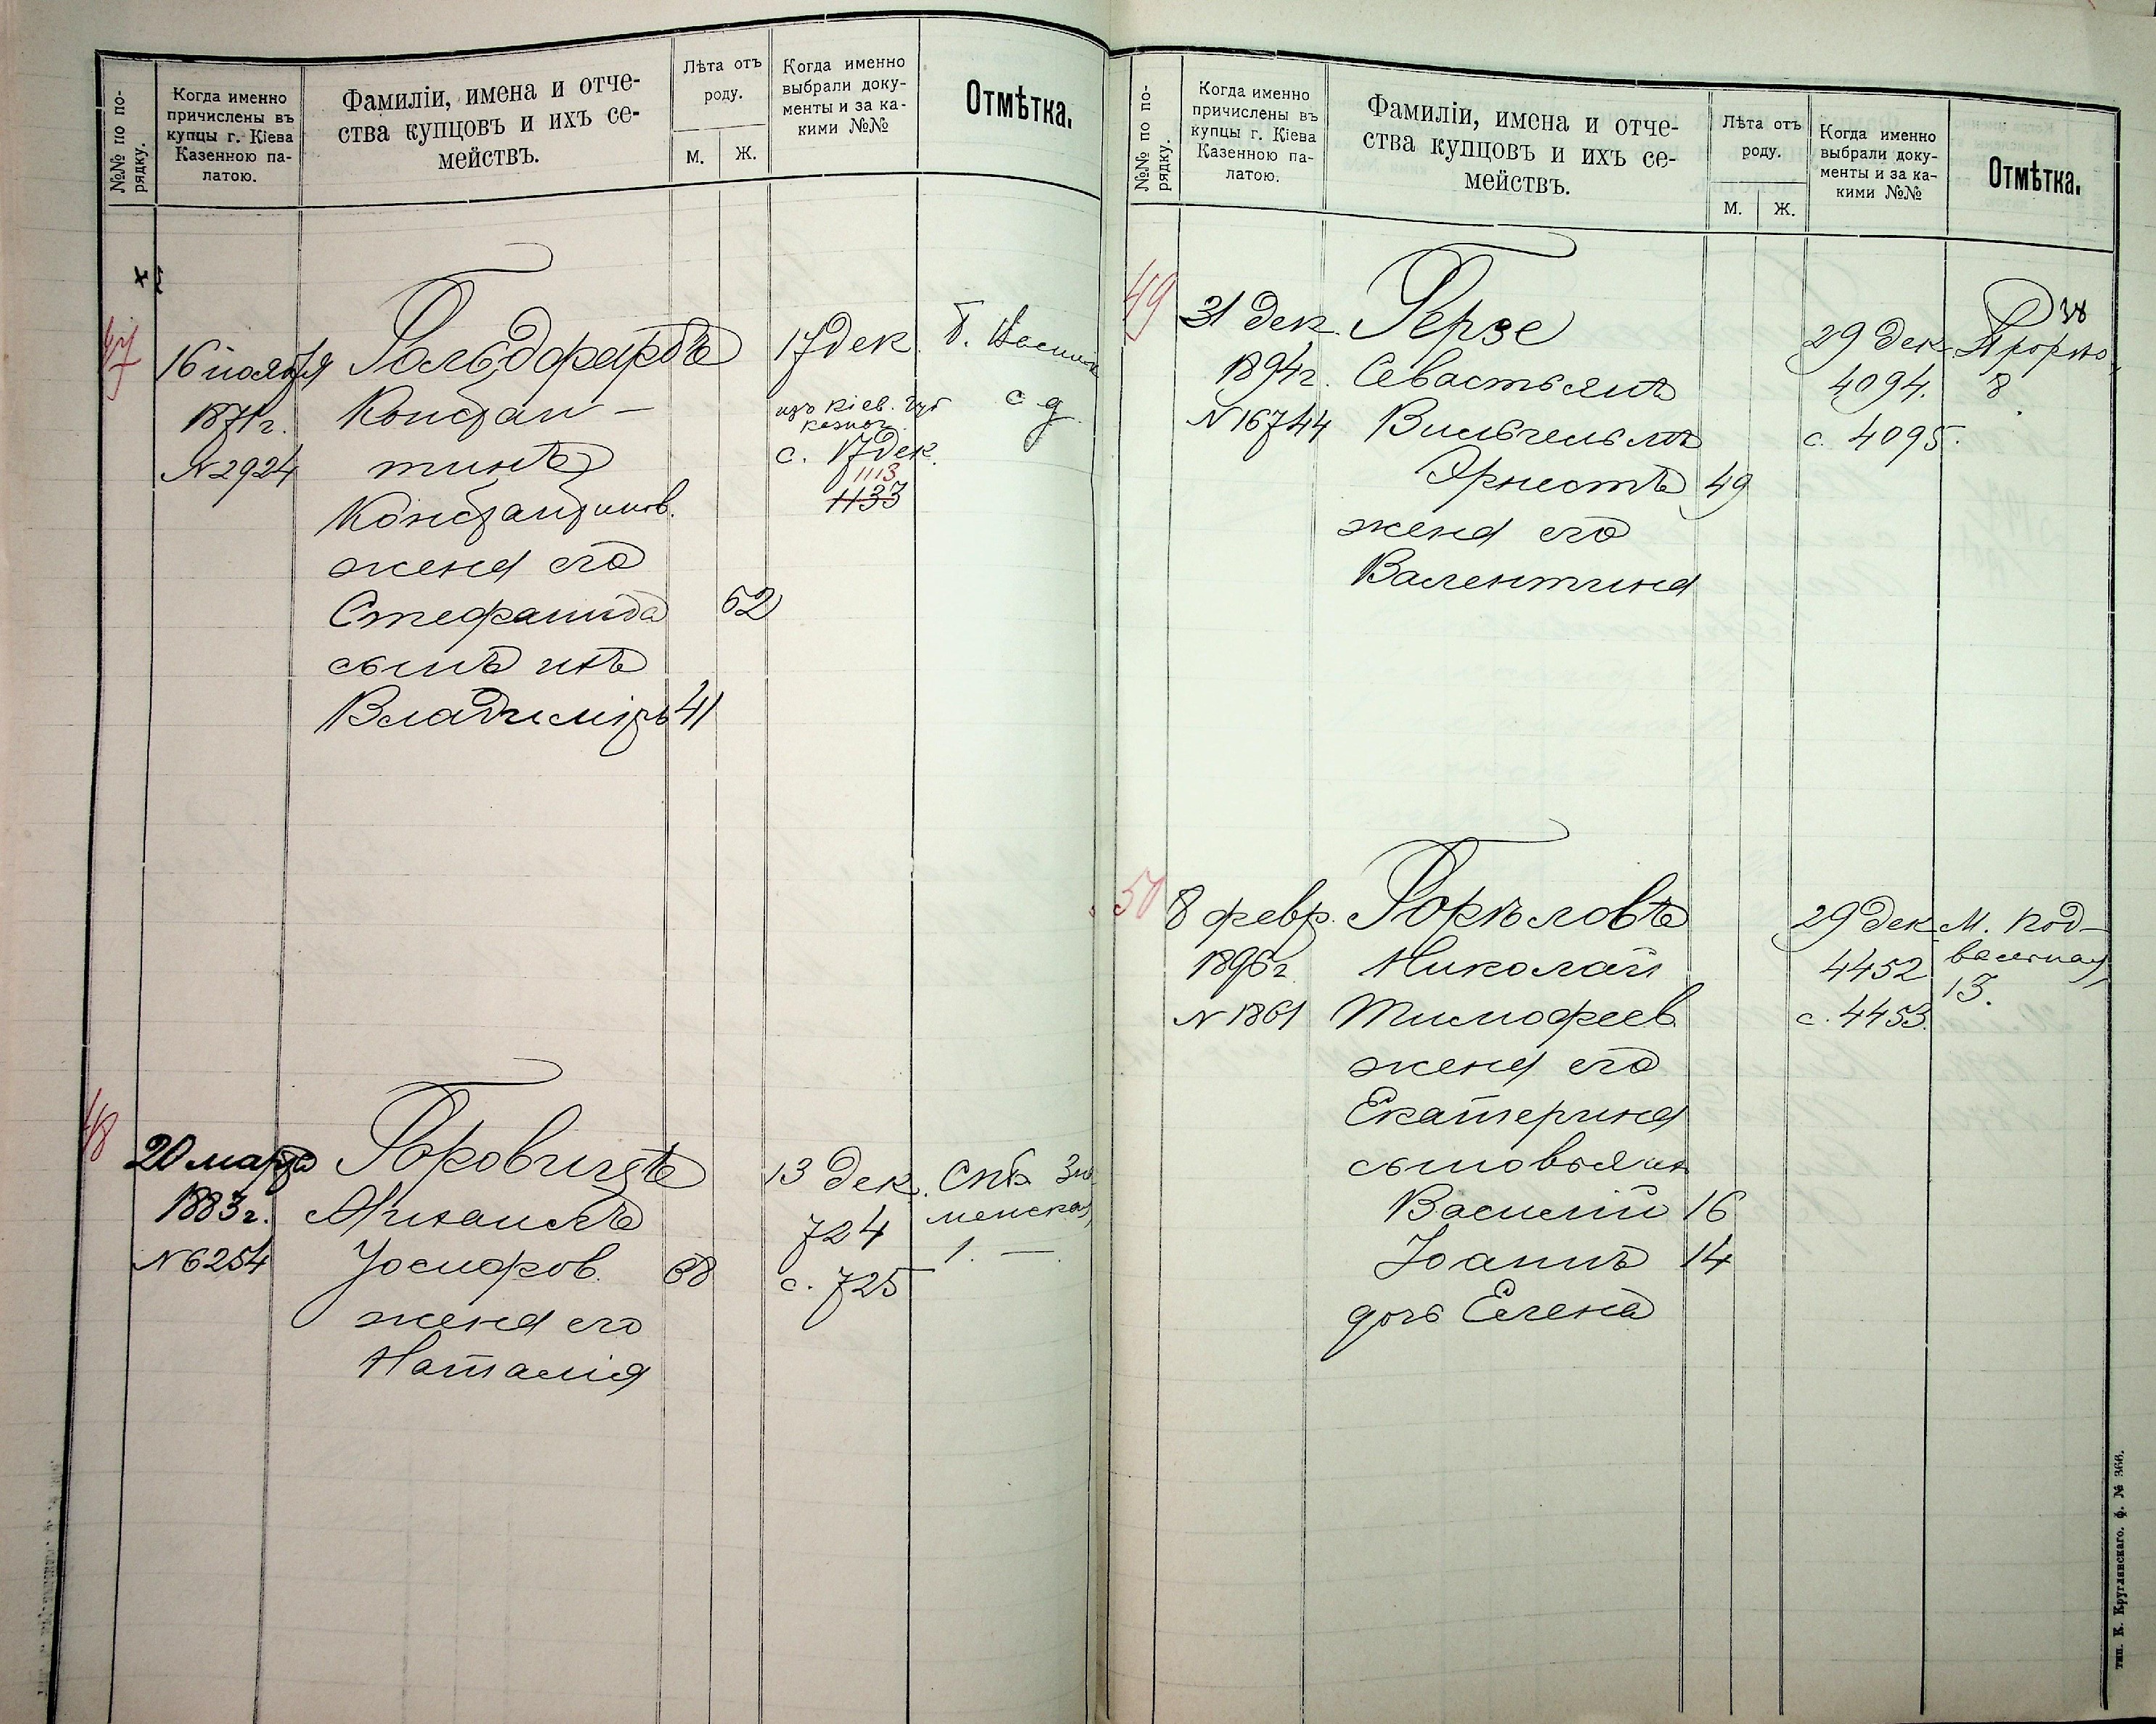 №№ по по-
рядку.
Когда именно
причислены въ
купцы г. Кіева
Казенною па-
латою.
Фамиліи, имена и отче-
ства купцовъ и ихъ се-
мействъ.
Лѣта отъ
роду.
М.
Ж.
Когда именно
выбрали доку-
менты и за ка-
кими №№
Отмѣтка.
47
16 ноября
1871г.
№2924
Гольдфарбъ
Констан-
тинъ
Константинов.
жена его
Стефанида 62
сынъ ихъ
Владиміръ 41
17 дек.
изъ Кіев. губ
казнач.
с. 17 дек.
1113
1133
Б. Васильк
с д.
48
20 марта
1883г.
№6254
Горовицъ
Михаилъ
Іосифов. 68
жена его
Наталія
13 дек.
724
с. 725
Спб.
менская,
1. —
№№ по по-
рядку.
Когда именно
причислены въ
купцы г. Кіева
Казенною па-
латою.
Фамиліи, имена и отче-
ства купцовъ и ихъ се-
мействъ.
Лѣта отъ
роду.
М.
Ж.
Когда именно
выбрали доку-
менты и за ка-
кими №№
Отмѣтка.
49
31 дек.
1894г.
№16744
Герзе
Севастьянъ
Вильгельмъ
Эрнестъ 49
жена его
Валентина
29 дек.
4094.
с. 4095.
Прорѣз
8.
50
8 февр.
1896г.
№1861
Горѣловъ
Николай
Тимофеев.
жена его
Екатерина
сыновья их
Василій 16
Іоаннъ 14
дочь Елена
29 дек.
4452
с. 4453.
М. Под-
вальная,
13.
тип. К. Круглянскаго. ф. № 366.